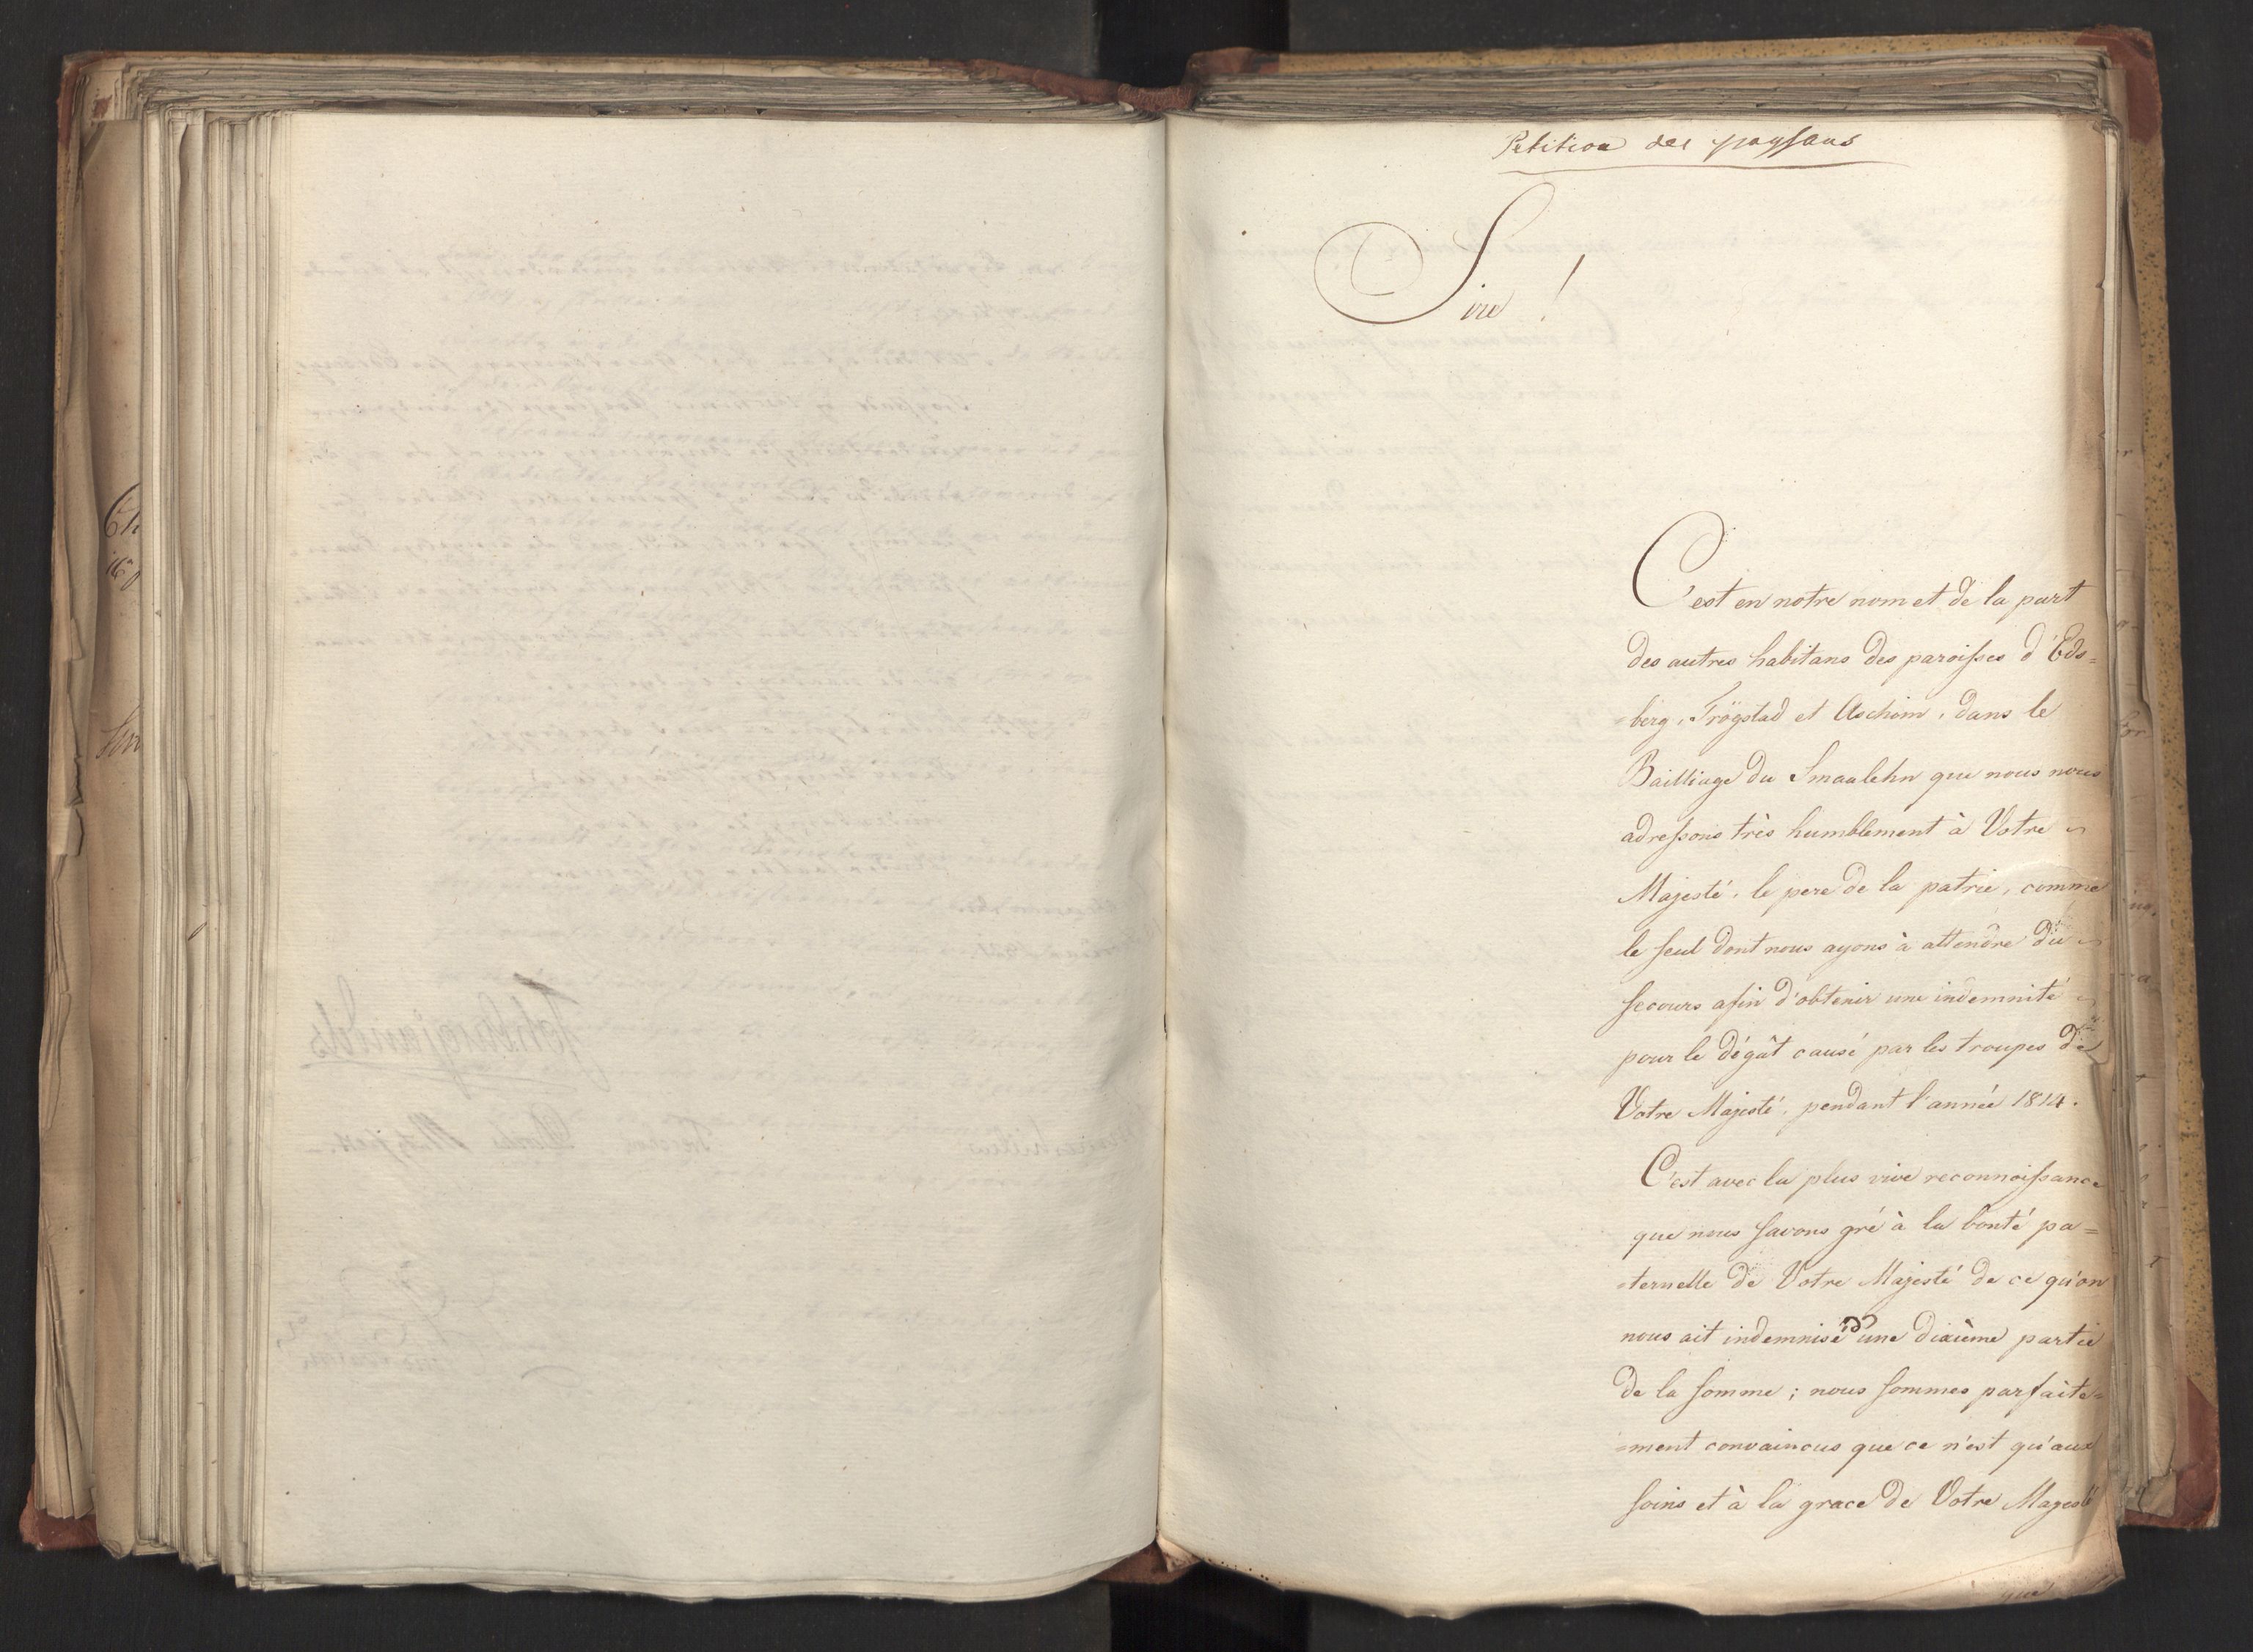 Petition des paysans
Sire !
C'est en notre nom et de la part
des autres habitans des paroisses d'Eds=
=berg, Trögstad et Aschim, dans le
Bailliage du Smaalehn que nous nous
adressons très humblement à Votre
Majesté, le pere de la patrie, comme
le seul dont nous ayons à attendre du
secours afin d'obtenir une indemnité
pour le dégât causé par les troupes de
Votre Majesté, pendant l'année 1814.
C'est avec la plus vive reconnoissance
que nous savons gré à la bonté pa=
=ternelle de Votre Majesté de ce qu'on
nous ait indemnisé d'une dixième partie
de la somme ; nous sommes parfaite=
=ment convaincus que ce n'est qu'aux
soins et à la grace de Votre Majesté
que